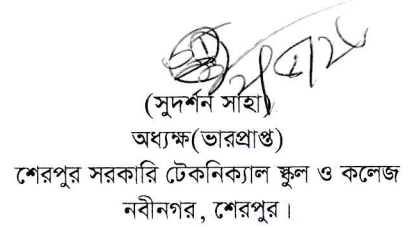 (সুদর্শন সাহা)
অধ্যক্ষ(ভারপ্রাপ্ত)
শেরপুর সরকারি টেকনিক্যাল স্কুল ও কলেজ
নবীনগর, শেরপুর।